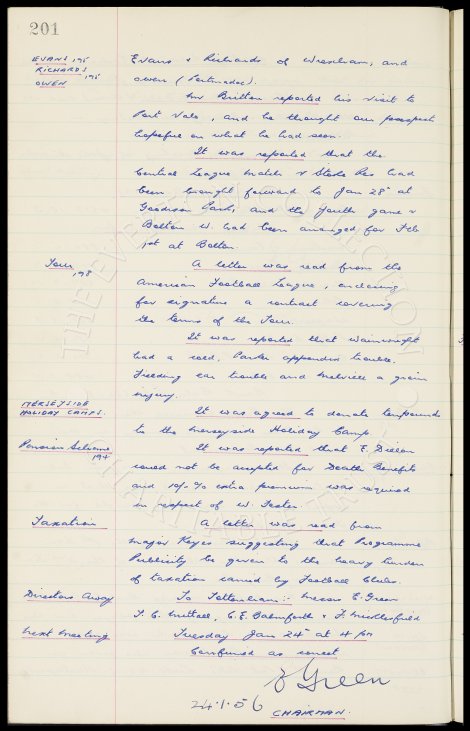 201
EVANS 195
RICHARDS 195
OWEN
Evans & Richards of Wrexham, and
Owen (Portmadoc).
Mr Britton reported his visit to
Port Vale, and he thought our prospects
hopeful on what he had seen.
It was reported that the
Central League match v Stoke Res had
been brought forward to Jan 28th at
Goodison Park, and the Youth game v
Bolton W. had been arranged for Feb
1st at Bolton.
Tour 198
A letter was read from the
American Football League, enclosing
for signature a contract covering
the terms of the Tour.
It was reported that Wainwright
had a cold, Parker appendix trouble,
ear trouble and Melville a groin
injury.
MERSEYSIDE
HOLIDAY CAMPS.
It was agreed to donate
to the Merseyside Holiday Camp.
Pension Scheme
194
It was reported that E. Dillon
could not be accepted for Death Benefits
and 10/-% extra premium was required
in respect of W. Foster.
Taxation
A letter was read from
Major Keyes suggesting that Programme
Publicity be given to the heavy burden
of taxation carried by Football Clubs.
Directors Away
To Tottenham:- Messrs E. Green
T. C. Nuttall, C. E. Balmforth & F. Micklesfield
Next Meeting
Tuesday Jan 24th at 4 pm
Confirmed as correct
E Green
24.1.56
CHAIRMAN.
THE EVERTON COLLECTION
CHARITABLE TRUST